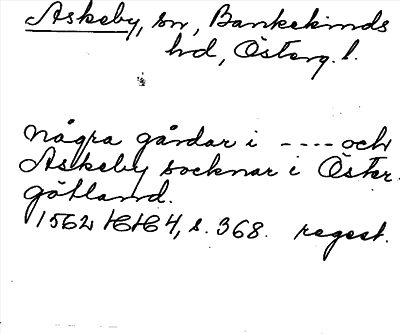 Askeby, sn, Bankekinds
hd, Österg. l.
några gårdar i ---- och
Askeby socknar i Öster-
götland.
1562 HH 4, s. 368. regest.